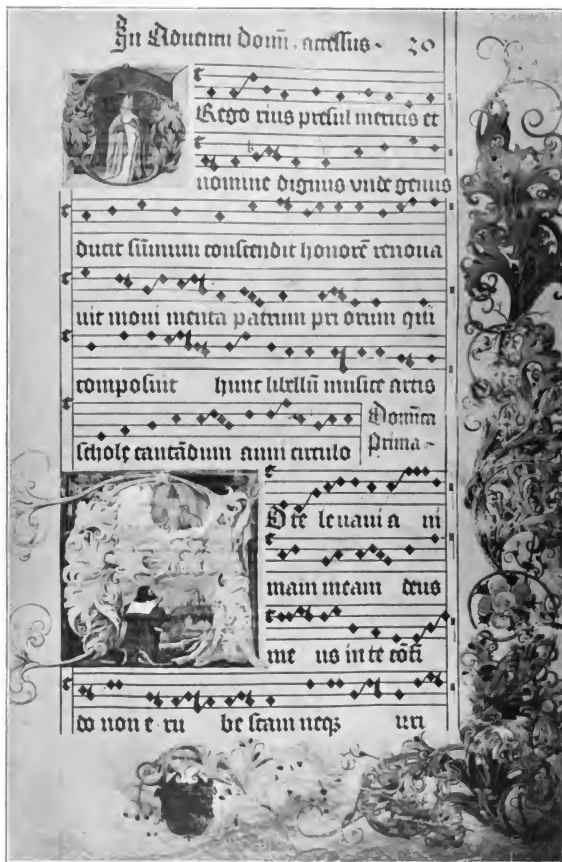 In Aduentu domī. accessus. 20
GRego rius presul meritis et
nomine dignus vnde genus
ducit sūmum conscendit honorē renoua
uit moni menta patrum pri orum qui
composuit hunc libellū musice artis
schole cantādum anni circulo
Domīca
Prima
AD te leuaui a ni
mam meam deus
me us in te cōfi
do non e ru be scam neqz irri